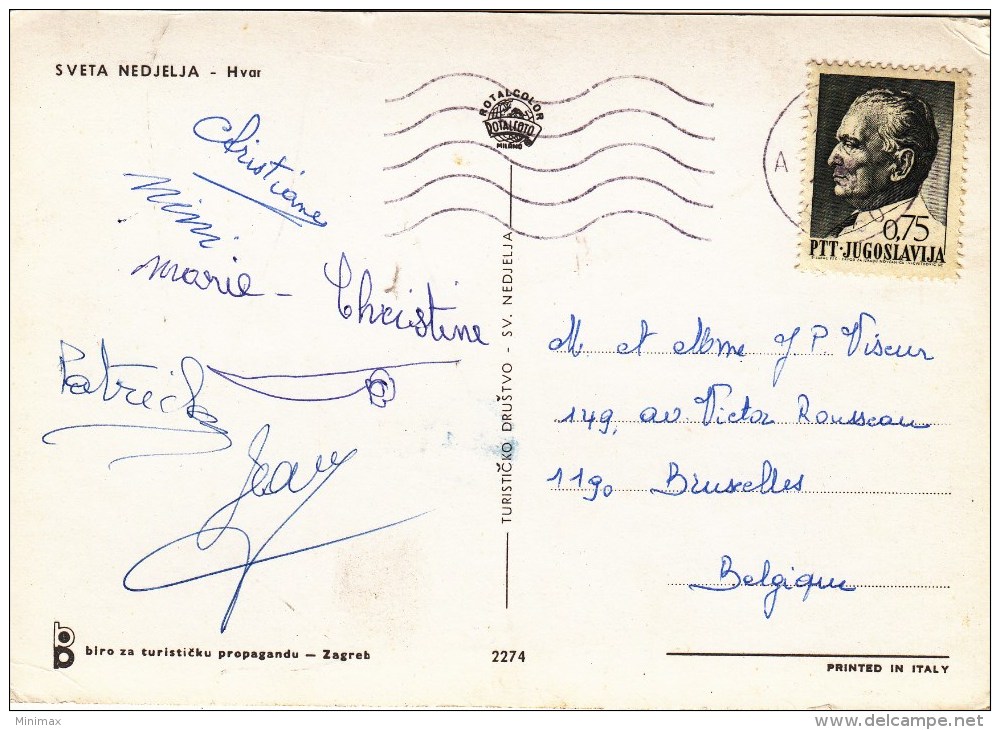 SVETA NEDJELJA - Hvar
Christiane
Mimi
Marie - Christine
Patrick
Jean
biro za turističku propagandu — Zagreb
2274
TURISTIČKO DRUŠTVO - SV. NEDJELJA
ROTALCOLOR
ROTALFOTO
MILANO
A
0,75
PTT·JUGOSLAVIJA
M et Mme J P Viseur
149, av Victor Rousseau
1190 Bruxelles
Belgique
PRINTED IN ITALY
Minimax
delcampe.net